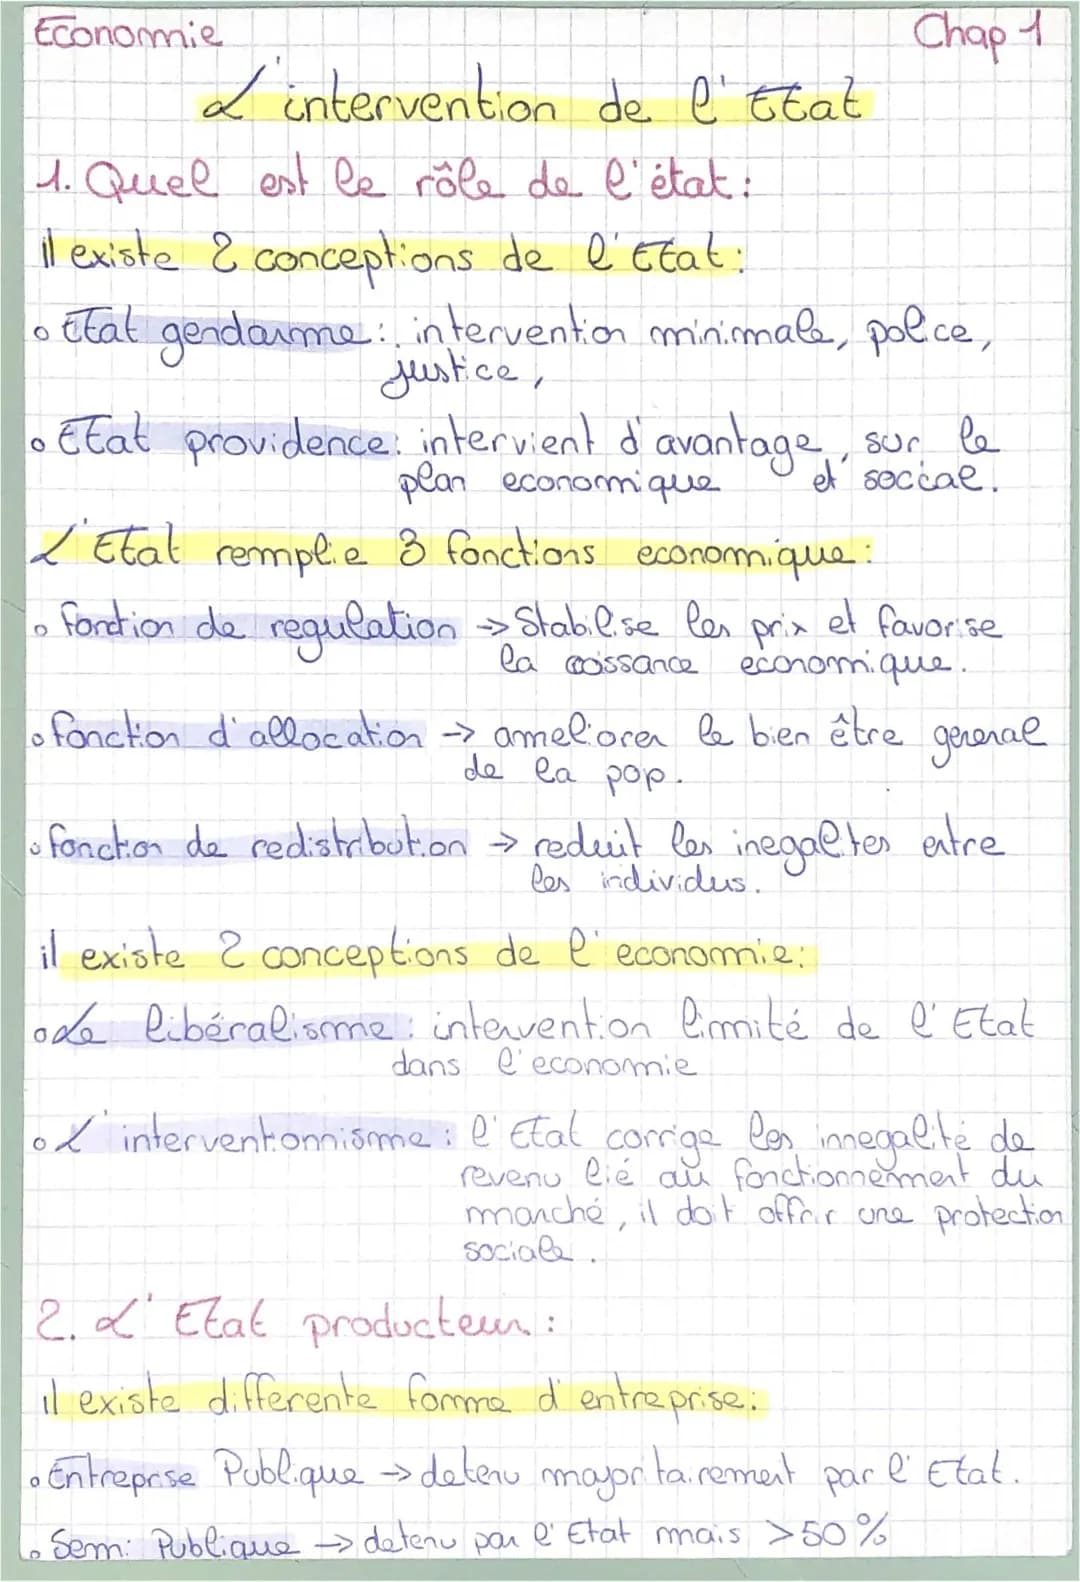 Economie Chap 1
L'intervention de l'Etat
1. Quel est le rôle de l'état :
il existe 2 conceptions de l'Etat :
o Etat gendarme : intervention minimale, police,
justice,
o Etat providence : intervient d'avantage, sur le
plan economique et social.
L'Etat remplie 3 fonctions economique :
o fonction de regulation → Stabilise les prix et favorise
la croissance economique.
o fonction d'allocation → ameliorer le bien être general
de la pop.
o fonction de redistribution → reduit les inegalites entre
les individus.
il existe 2 conceptions de l'economie :
o Le libéralisme : intervention limité de l'Etat
dans l'economie
o L'interventionnisme : l'Etat corrige les innegalité de
revenu lié au fonctionnement du
marché, il doit offrir une protection
sociale.
2. L'Etat producteur :
il existe differente forme d'entreprise :
o Entreprise Publique → detenu majoritairement par l'Etat.
o Semi Publique → detenu par l'Etat mais >50%